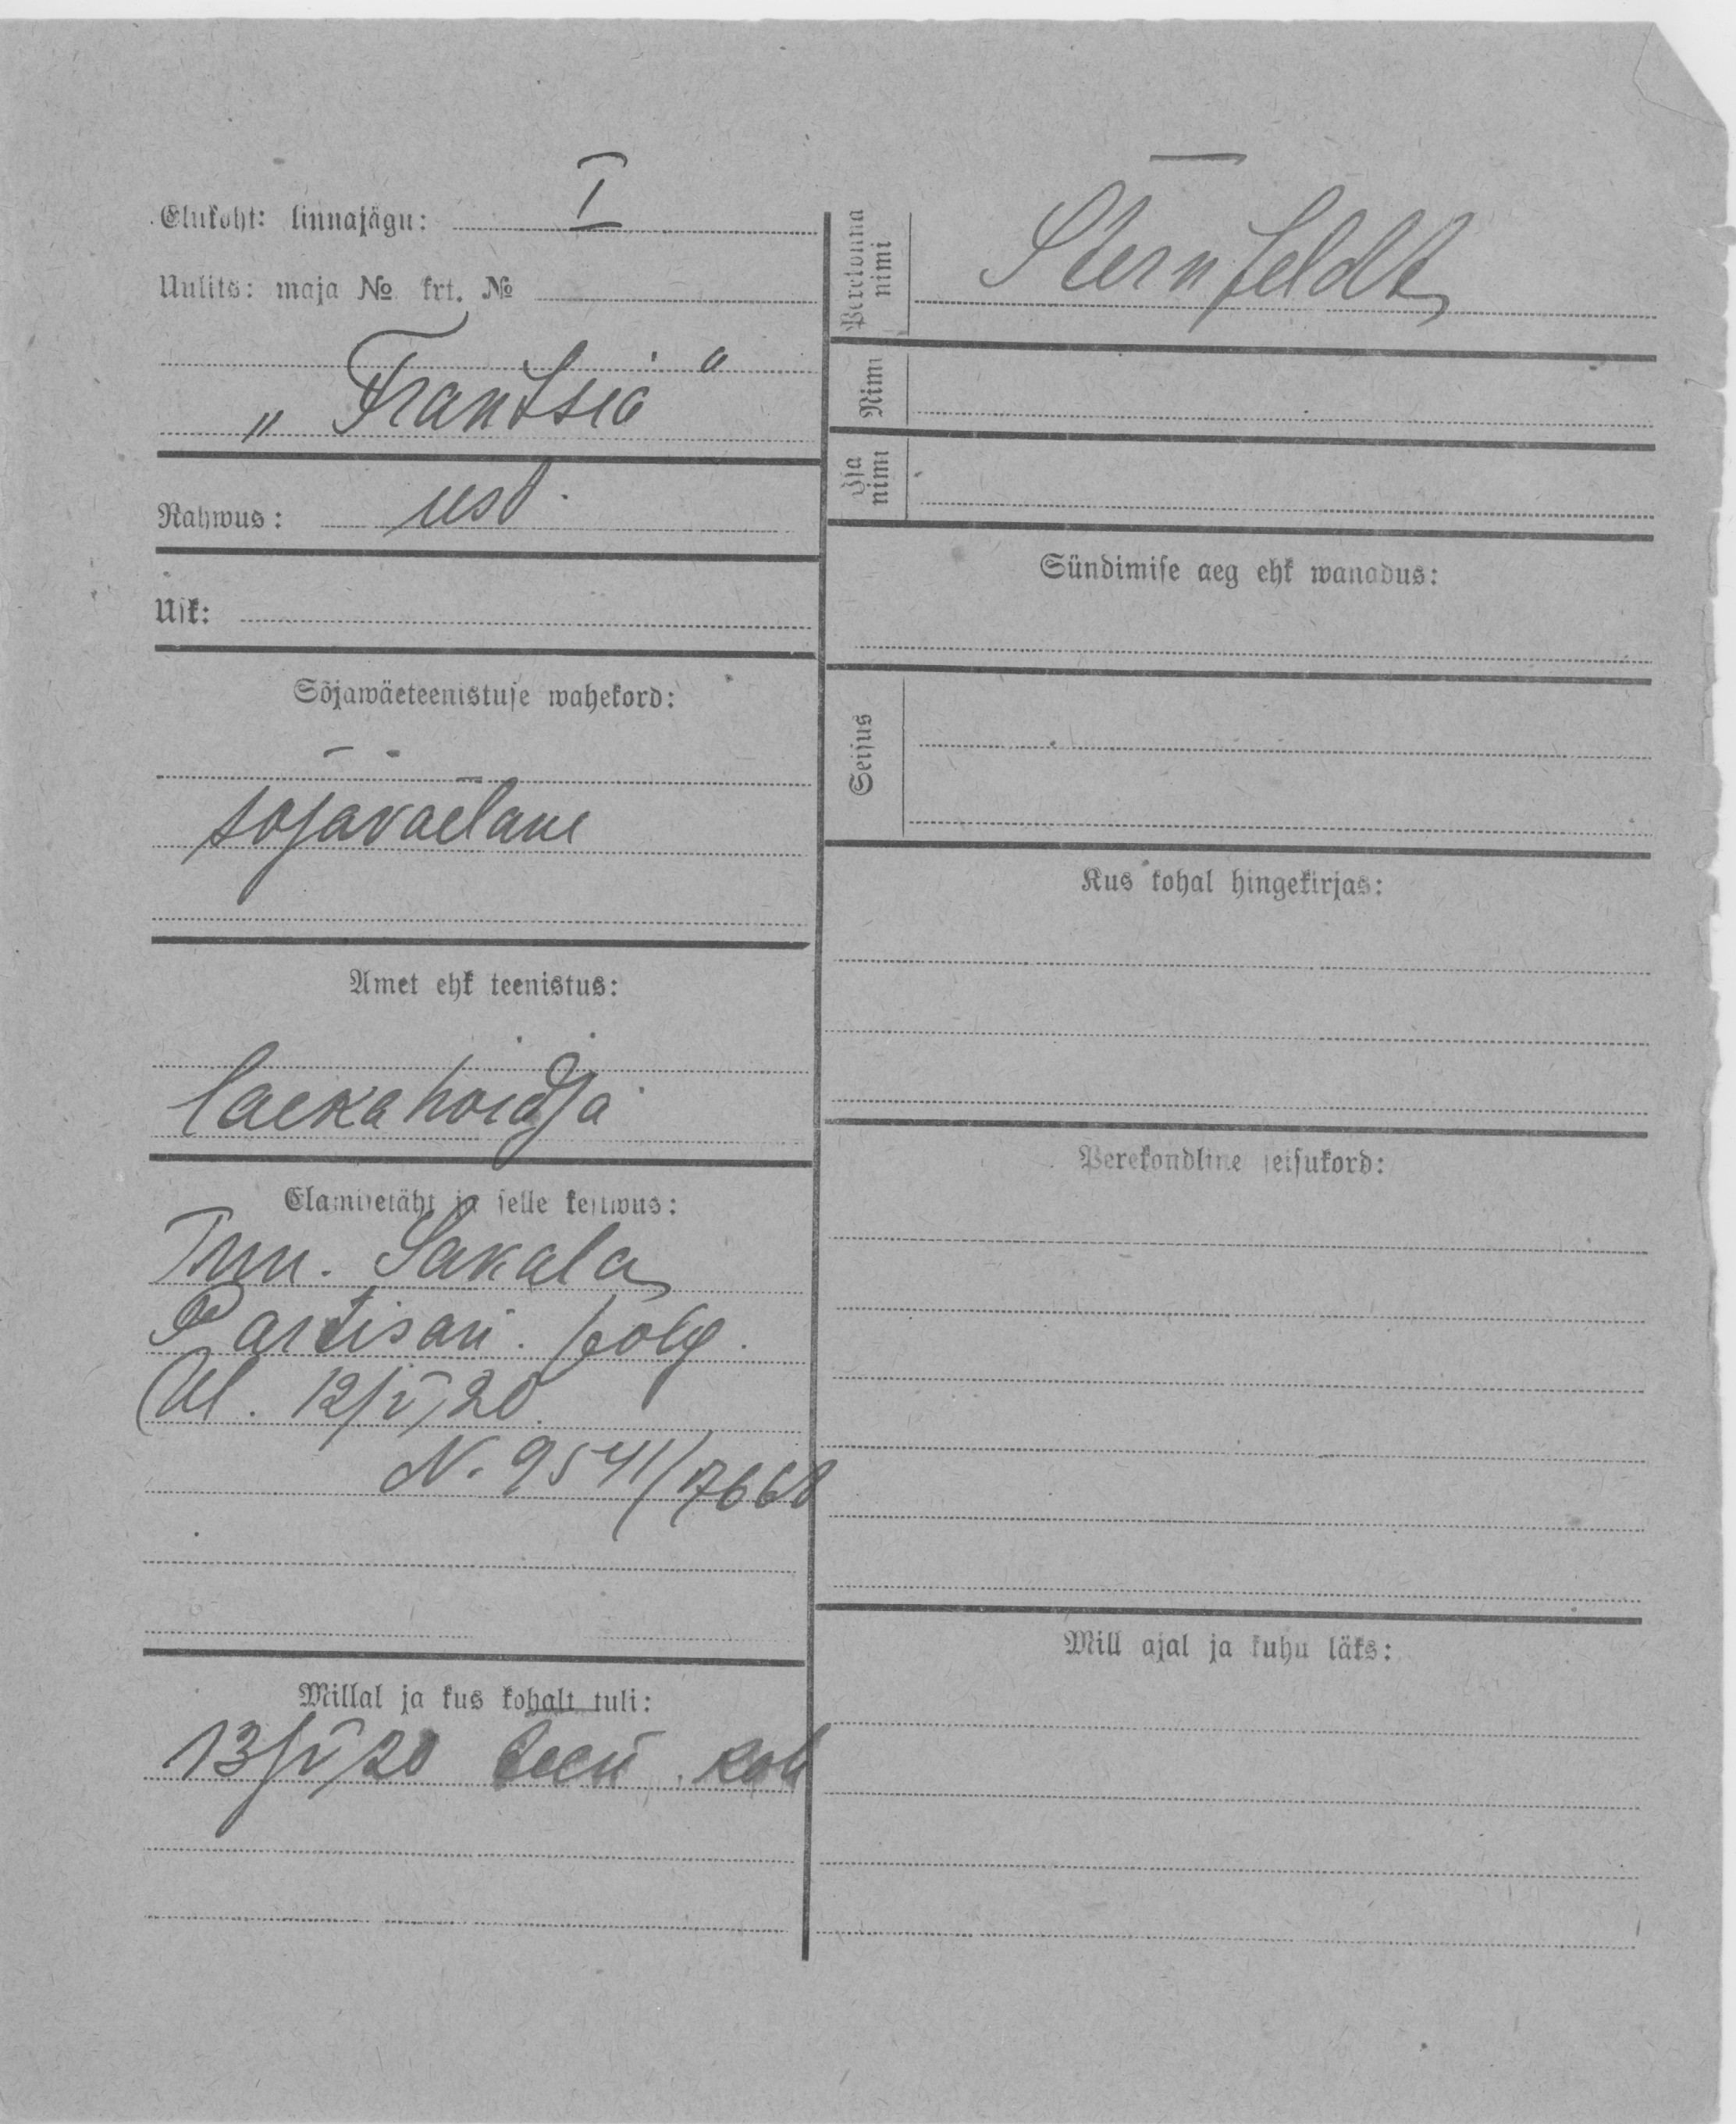 Elukoht: linnajägu: I
Uulits: maja № krt. №
„Frantsia“
Rahwus: est.
Usk:
Sõjawäeteenistuse wahekord:
sõjaväelane
Amet ehk teenistus:
laekahoidja
Elamisetäht ja selle kestwus:
Tunn. Sakala
Partisan. polg.
Ul. 12/V 20.
N. 9541/17668
Millal ja kus kohalt tuli:
13/V 20
Perekonna nimi
Sternfeldt
Nimi
Isa nimi
Sündimise aeg ehk wanadus:
Seisus
Kus kohal hingekirjas:
Perekondline seisukord:
Mill ajal ja kuhu läks: